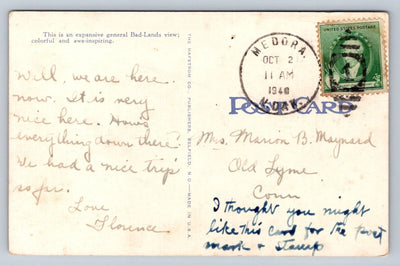 This is an expansive general Bad-Lands view;
colorful and awe-inspiring.
Well, we are here
now. It is very
nice here. Hows
everything down there?
We had a nice trip
so far.
Love
Florence
THE HAYSTROM CO. PUBLISHERS, BELFIELD, N. D. - MADE IN U.S.A.
MEDORA
OCT 2
11 AM
1940
N.DAK.
UNITED STATES POSTAGE
POST CARD
Mrs. Marion B. Maynard
Old Lyme
Conn
I thought you might
like this card for the post
mark + stamp